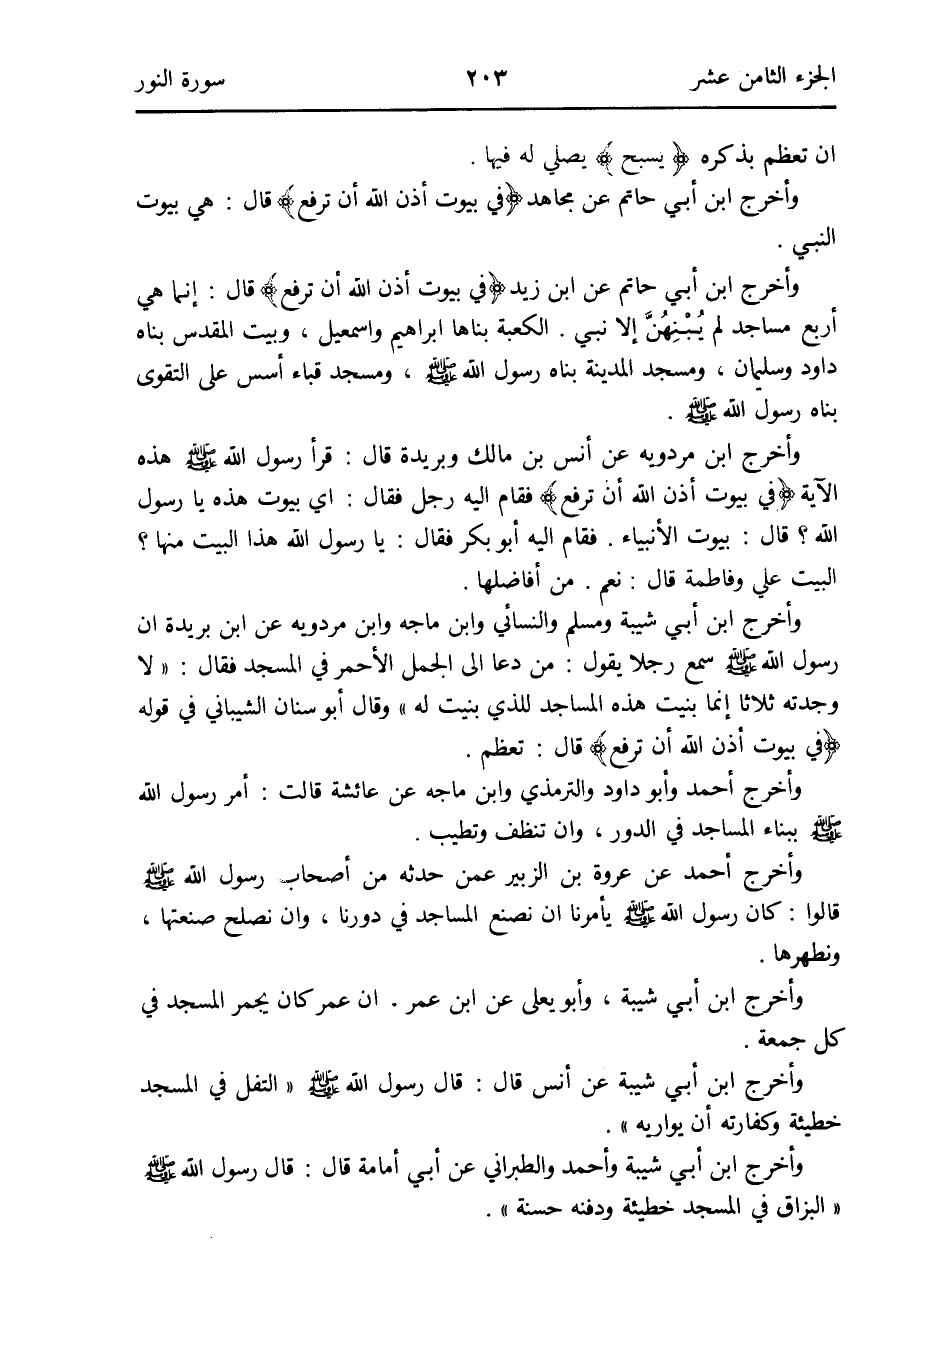 الجزء الثامن عشر ٢٠٣ سورة النور
ان تعظم بذكره ﴿ يسبح ﴾ يصلي له فيها .
وأخرج ابن أبي حاتم عن مجاهد ﴿في بيوت أذن الله أن ترفع﴾ قال : هي بيوت
النبي .
وأخرج ابن أبي حاتم عن ابن زيد ﴿في بيوت أذن الله أن ترفع﴾ قال : إنما هي
أربع مساجد لم يُبْنِهُنَّ إلا نبي . الكعبة بناها ابراهيم واسمعيل ، وبيت المقدس بناه
داود وسليمان ، ومسجد المدينة بناه رسول الله ﷺ ، ومسجد قباء أسس على التقوى
بناه رسول الله ﷺ .
وأخرج ابن مردويه عن أنس بن مالك وبريدة قال : قرأ رسول الله ﷺ هذه
الآية ﴿في بيوت أذن الله أن ترفع﴾ فقام اليه رجل فقال : اي بيوت هذه يا رسول
الله ؟ قال : بيوت الأنبياء . فقام اليه أبو بكر فقال : يا رسول الله هذا البيت منها ؟
البيت علي وفاطمة قال : نعم . من أفاضلها .
وأخرج ابن أبي شيبة ومسلم والنسائي وابن ماجه وابن مردويه عن ابن بريدة ان
رسول الله ﷺ سمع رجلا يقول : من دعا الى الجمل الأحمر في المسجد فقال : « لا
وجدته ثلاثا إنما بنيت هذه المساجد للذي بنيت له » وقال أبو سنان الشيباني في قوله
﴿في بيوت أذن الله أن ترفع﴾ قال : تعظم .
وأخرج أحمد وأبو داود والترمذي وابن ماجه عن عائشة قالت : أمر رسول الله
ﷺ ببناء المساجد في الدور ، وان تنظف وتطيب .
وأخرج أحمد عن عروة بن الزبير عمن حدثه من أصحاب رسول الله ﷺ
قالوا : كان رسول الله ﷺ يأمرنا ان نصنع المساجد في دورنا ، وان نصلح صنعتها ،
ونطهرها .
وأخرج ابن أبي شيبة ، وأبو يعلى عن ابن عمر . ان عمر كان يجمر المسجد في
كل جمعة .
وأخرج ابن أبي شيبة عن أنس قال : قال رسول الله ﷺ « التفل في المسجد
خطيئة وكفارته أن يواريه » .
وأخرج ابن أبي شيبة وأحمد والطبراني عن أبي أمامة قال : قال رسول الله ﷺ
« البزاق في المسجد خطيئة ودفنه حسنة » .